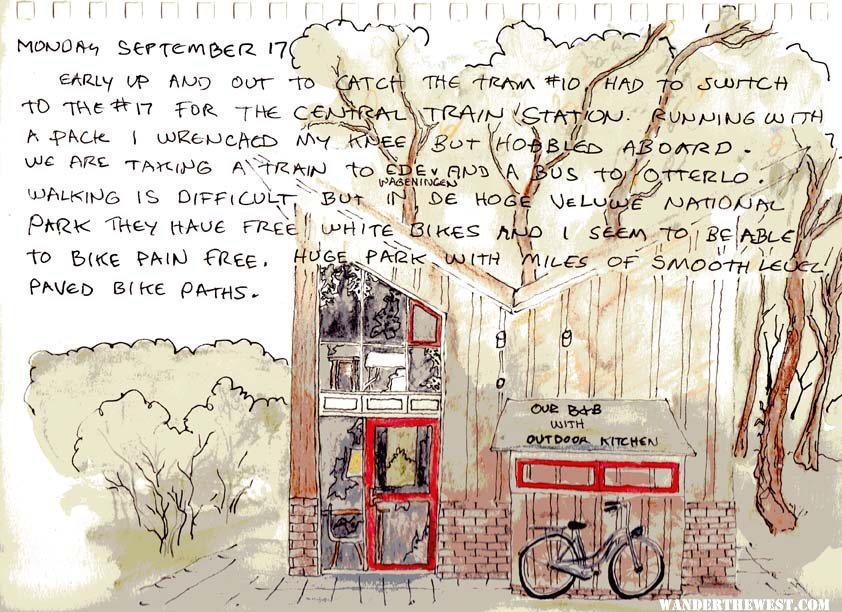 MONDAY SEPTEMBER 17
EARLY UP AND OUT TO CATCH THE TRAM #10. HAD TO SWITCH
TO THE #17 FOR THE CENTRAL TRAIN STATION. RUNNING WITH
A PACK I WRENCHED MY KNEE BUT HOBBLED ABOARD.
WE ARE TAKING A TRAIN TO EDE WAGENINGEN AND A BUS TO OTTERLO.
WALKING IS DIFFICULT BUT IN DE HOGE VELUWE NATIONAL
PARK THEY HAVE FREE WHITE BIKES AND I SEEM TO BE ABLE
TO BIKE PAIN FREE. HUGE PARK WITH MILES OF SMOOTH LEVEL
PAVED BIKE PATHS.
OUR B&B
WITH
OUTDOOR KITCHEN
WANDERTHEWEST.COM